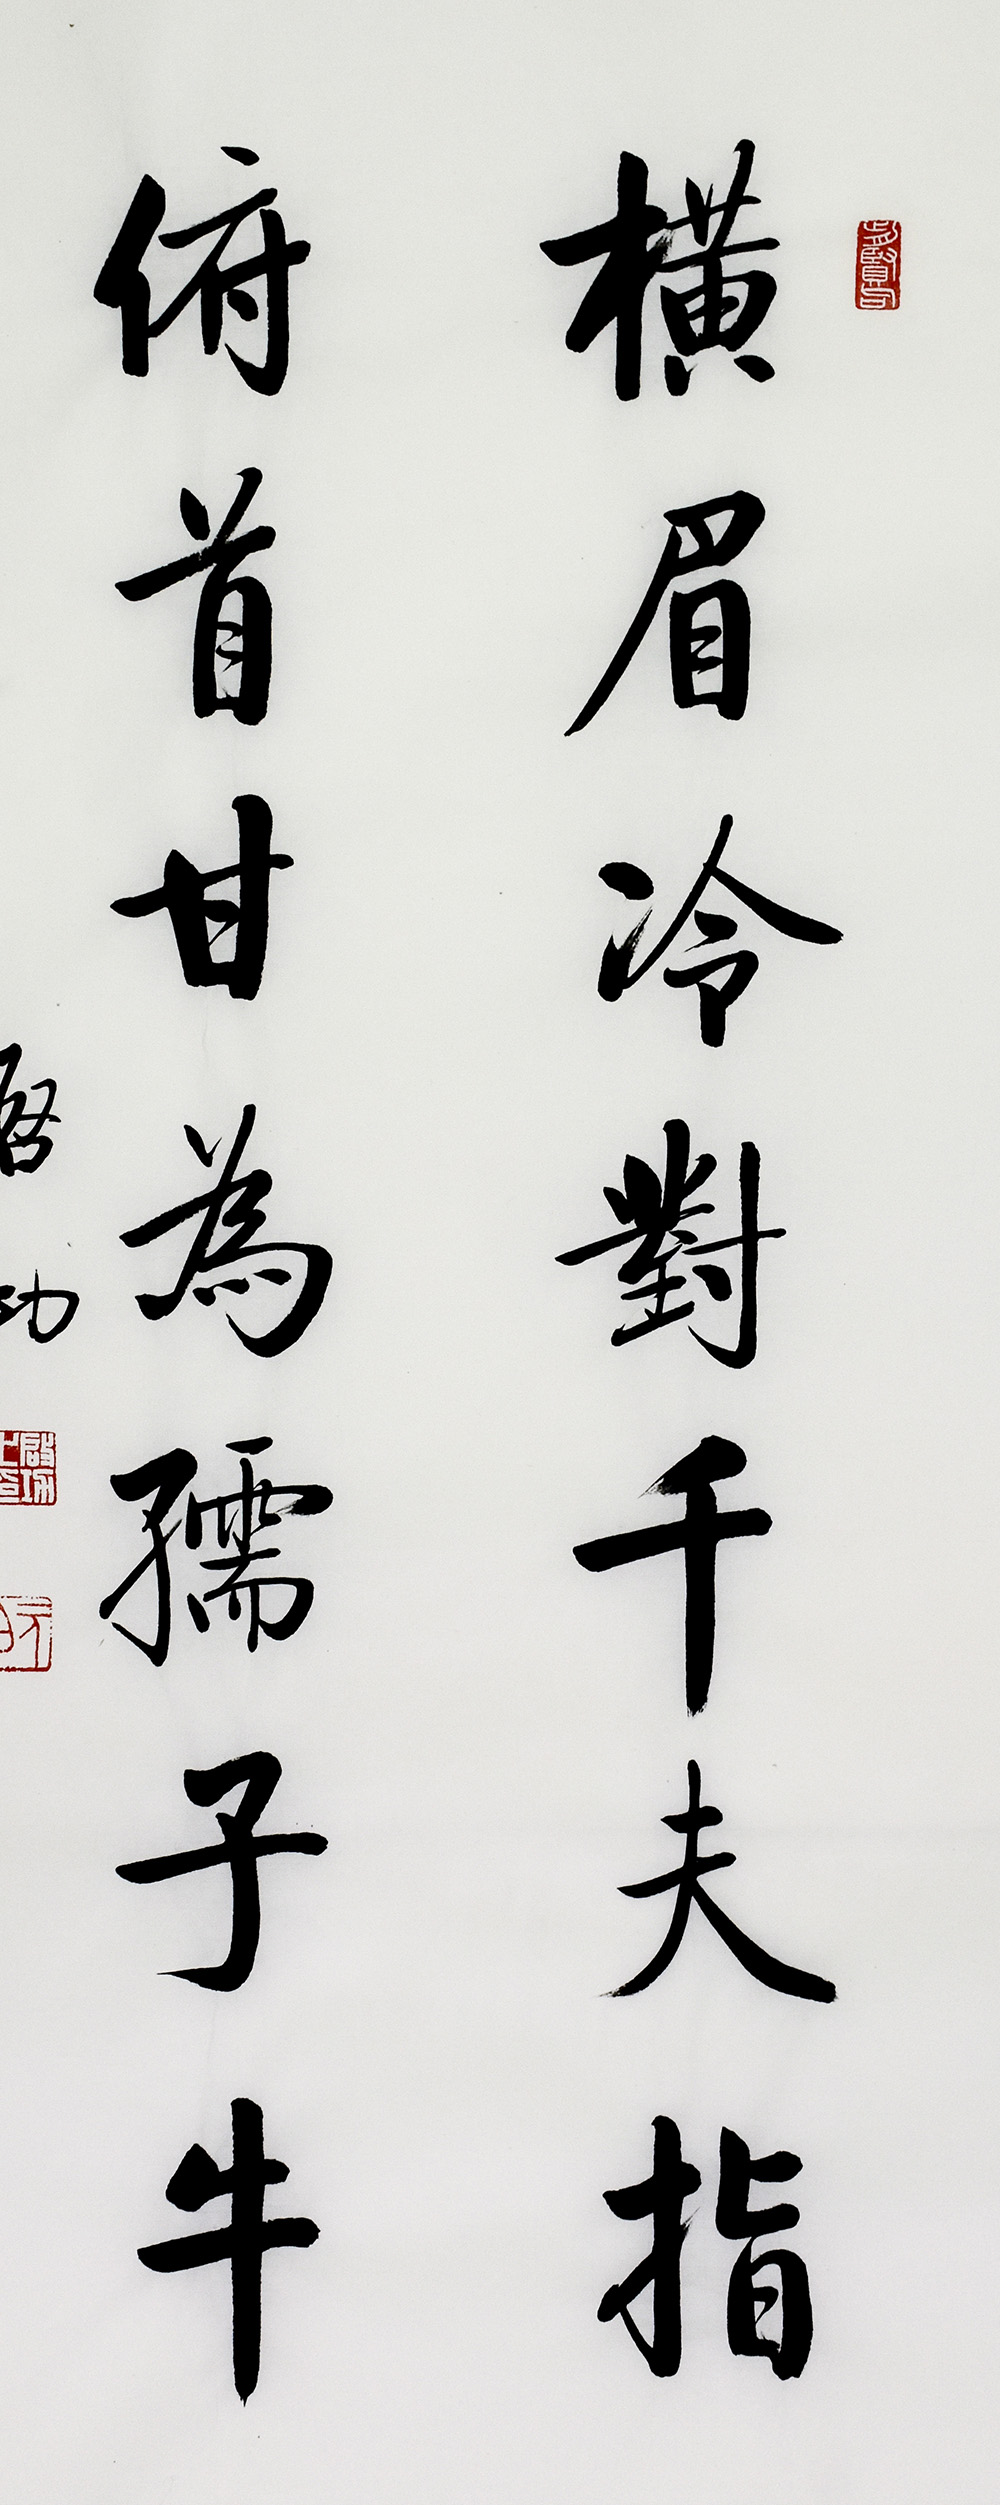 橫眉冷對千夫指
俯首甘為孺子牛
啓功